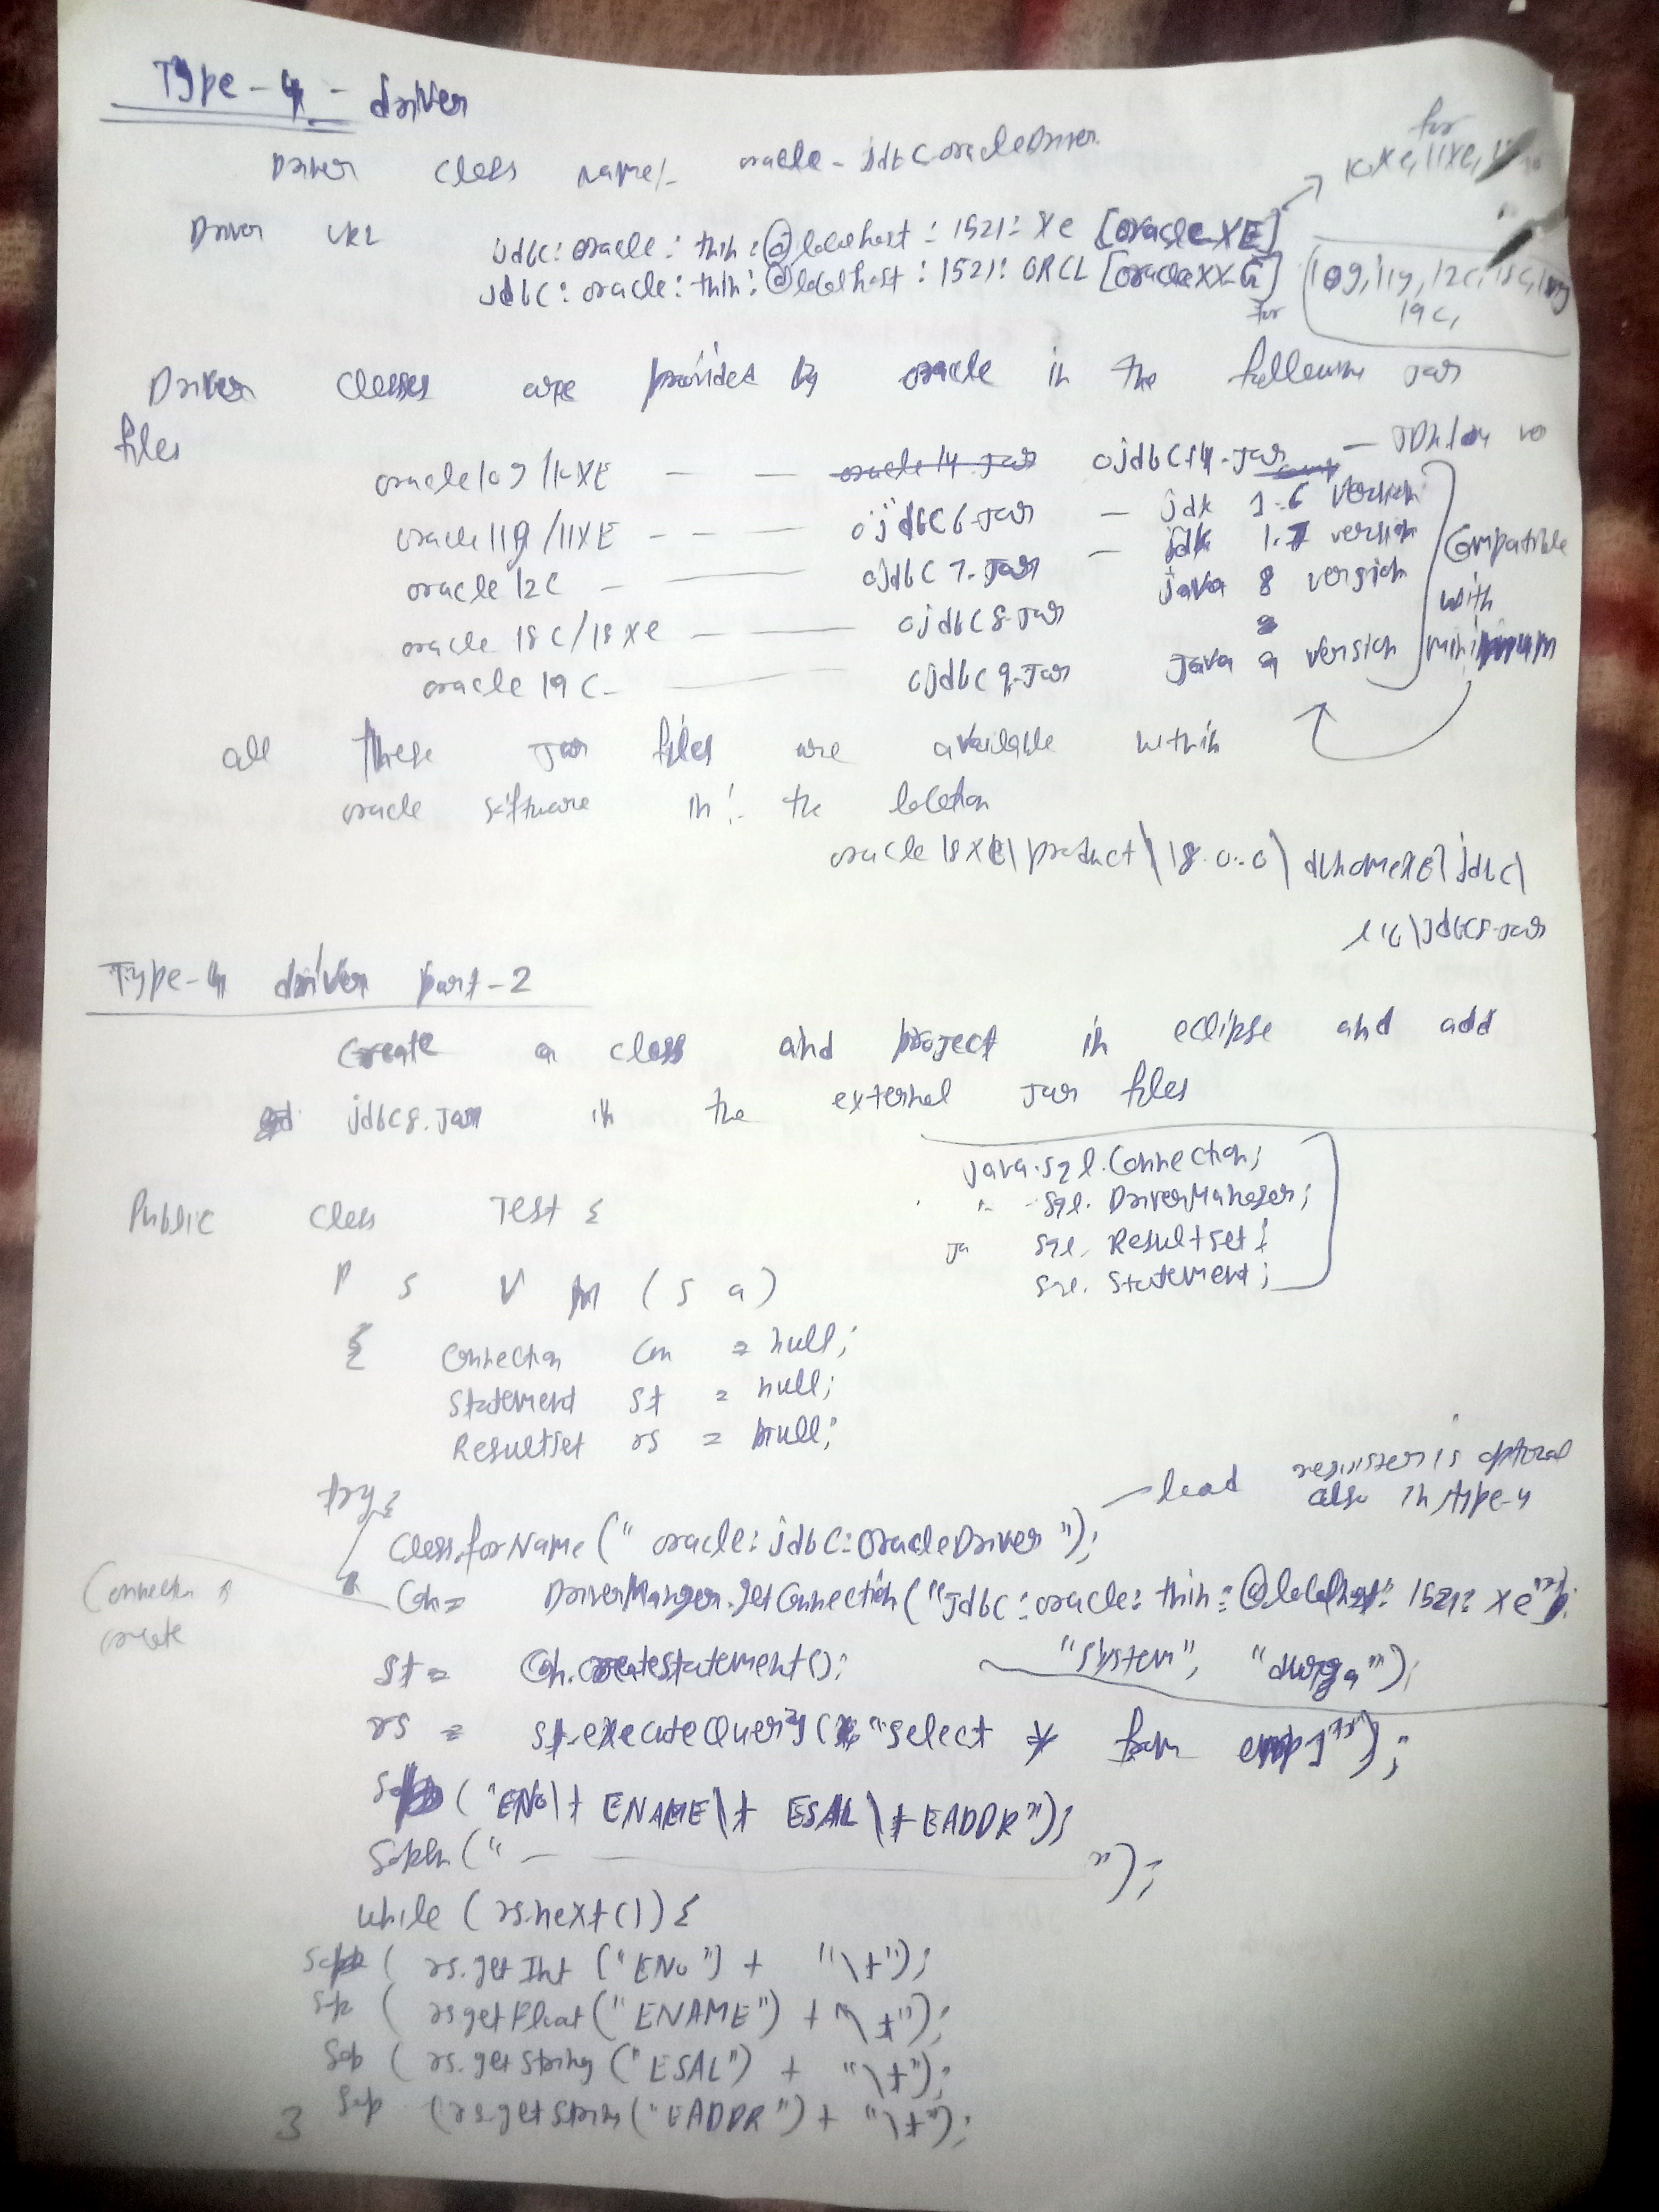 Type-4 - driver
Driver class name:- oracle-jdbc.oracleDriver.
for
10xe, 11xe,
Driver URL jdbc: oracle: thin:@localhost: 1521: xe [oracle XE]
jdbc: oracle: thin:@localhost: 1521: ORCL [oracle XX G] for
10g, 11g, 12c, 18c,
19c,
Driver classes are provides by oracle in the following jar
files
oracle10g/10XE - - oracle14.jar ojdbc14.jar - JDK
oracle11g/11XE - - - ojdbc6.jar - jdk 1.6 version
oracle 12c - ojdbc7.jar - jdk 1.7 version
oracle 18c/18xe - ojdbc8.jar java 8 version
oracle 19c - ojdbc9.jar Java 9 version
Compatible
with
minimum
all these Jar files are available within
oracle software in :- the location
oracle18xe\product\18.0.0\dbhomeXE\jdbc\
lib\jdbc8.jar
Type-4 driver part-2
Create a class and project in eclipse and add
jdbc8.jar in the external Jar files
java.sql.Connection;
" -sql. DriverManager;
Ja sql. Resultset;
sql. Statement;
Public class Test {
P S V M (S a)
{ Connection con = null;
Statement st = null;
Resultset rs = null;
try{
load register is optional
also in type-4
Class.forName(" oracle:jdbc:OracleDriver ");
Connection is
create
Con= DriverManger.getConnection("Jdbc:oracle: thin:@localhost: 1521: xe"
"system", "durga");
st= Con.createstatement();
rs = st.executeQuery("select * from emp1");
("ENO\t ENAME\t ESAL\t EADDR");
Sopln(" — ");
while (rs.next()) {
Sop ( rs.getInt ("ENo") + "\t");
Sop ( rs.getFloat("ENAME") + "\t");
Sop ( rs.getString ("ESAL") + "\t");
Sop (rs.getString("EADDR") + "\t");
}